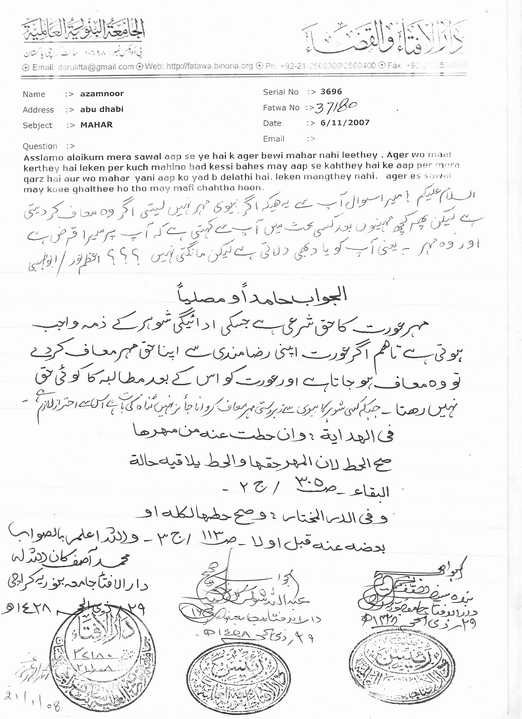 دار الافتاء والقضاء
الجامعة البنورية العالمية
Email: darulifta@gmail.com Web: http://fatawa.binoria.org Ph: +92-21-2560300/2560400 Fax:
Name :> azamnoor
Serial No :> 3696
Address :> abu dhabi
Fatwa No :> 37180
Subject :> MAHAR
Date :> 6/11/2007
Email :>
Question :>
Asslamo alaikum mera sawal aap se ye hai k ager bewi mahar nahi leethey . Ager wo maat
kerthey hai leken per kuch mahino bad kessi bahes may aap se kahthey hai ke aap per mera
qarz hai aur wo mahar yani aap ko yad b delathi hai. leken mangthey nahi. ager es sawal
may koee ghalthee ho tho may mafi chahtha hoon.
السلام علیکم! میرا سوال آپ سے یہ ہیکہ اگر بیوی مہر نہیں لیتی اگر وہ معاف کر دیتی
ہے لیکن پھر کچھ مہینوں بعد کسی بحث میں آپ سے کہتی ہے کہ آپ پر میرا قرض ہے
اور وہ مہر ۔ یعنی آپ کو یاد بھی دلاتی ہے لیکن مانگتی نہیں ؟؟؟ اعظم نور / ابوظہبی
الجواب حامداً ومصلیاً
مہر عورت کا حق شرعی ہے جسکی ادائیگی شوہر کے ذمہ واجب
ہوتی ہے تاہم اگر عورت اپنی رضامندی سے اپنا حق مہر معاف کردے
تو وہ معاف ہو جاتا ہے اور عورت کو اس کے بعد مطالبہ کا کوئی حق
نہیں رھتا ۔ جبکہ کسی شوہر کا بیوی سے زبردستی مہر معاف کروانا جائز نہیں گناہ کی بات ہے اس سے احتراز لازم ہے۔
فی الھدایة : وان حطت عنه من مهرها
صح الحط لان المهر حقها والحط یلاقیه حالة
البقاء ۔ ص ۳۰۵ / ج ۲ ۔
وفی الدر المختار : وصح حطها لكله او
بعضه عنه قبل اولا ۔ ص ۱۱۳ / ج ۳ ۔ واللہ اعلم بالصواب
محمد آصف کان اللہ لہ
دار الافتا جامعہ بنوریہ کراچی
۲۹ ذی الحجہ ۱۴۲۸ھ
دار الافتا جامعہ بنوریہ
۲۹ ذی الحجہ ۱۴۲۸ھ
دار الافتا جامعہ بنوریہ
دار الافتاء
رئیس
رئیس
21/1/08